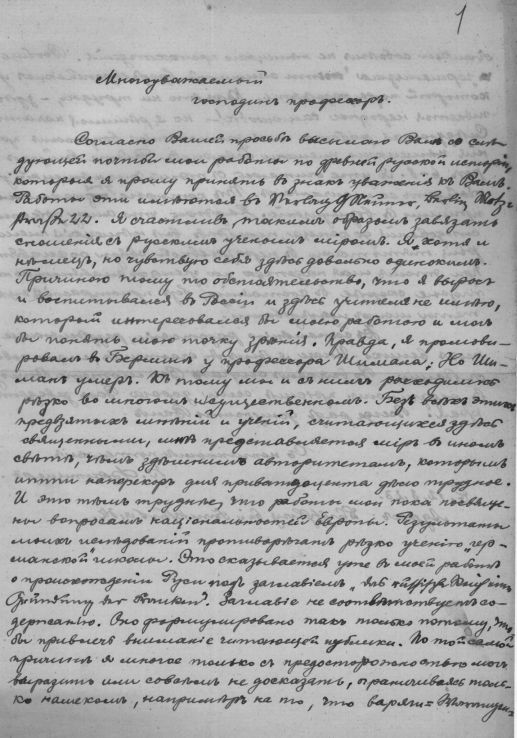 1
Многоуважаемый
господинъ профессоръ.
Согласно Вашей просьбѣ высылаю Вамъ со слѣ
дующей почтой мои работы по древней русской исторіи,
которыя я прошу принять въ знакъ уваженія къ Вамъ.
Работы эти имѣются въ
22. Я счастливъ такимъ образомъ завязать
сношенія съ русскимъ ученымъ міромъ. Я, хотя и
нѣмецъ, но чувствую себя здѣсь довольно одинокимъ.
Причиною тому то обстоятельство, что я выросъ
и воспитывался въ Россіи и здѣсь учителя не имѣю,
который интересовался бы моею работою и могъ
бы понять мою точку зрѣнія. Правда, я промови-
ровалъ въ Берлинѣ у профессора Шимана; Но Ши-
манъ умеръ. Къ тому мы и съ нимъ расходимся
рѣзко во многомъ и существенномъ. Безъ всѣхъ этихъ
предвзятыхъ мнѣній и ученій, считающихся здѣсь
священными, мнѣ представляется міръ въ иномъ
свѣтѣ, чѣмъ здѣшнимъ авторитетамъ, которымъ
итти наперекоръ для приватдоцента дѣло трудное.
И это тѣмъ труднѣе, что работы мои пока посвяще-
ны вопросамъ національностей Европы. Результаты
моихъ изслѣдованій противорѣчатъ рѣзко ученію „гер-
манской" школы. Это сказывается уже въ моей работѣ
о происхожденіи Руси подъ заглавіемъ
Заглавіе не соотвѣтствуетъ со-
держанію. Оно формулировано такъ только потому, что
бы привлечь вниманіе читающей публики. По той самой
причинѣ я многое только съ предосторожностью могъ
выразить или совсѣмъ не досказать, ограничиваясь толь-
ко намекомъ, напримѣръ на то, что варяги =